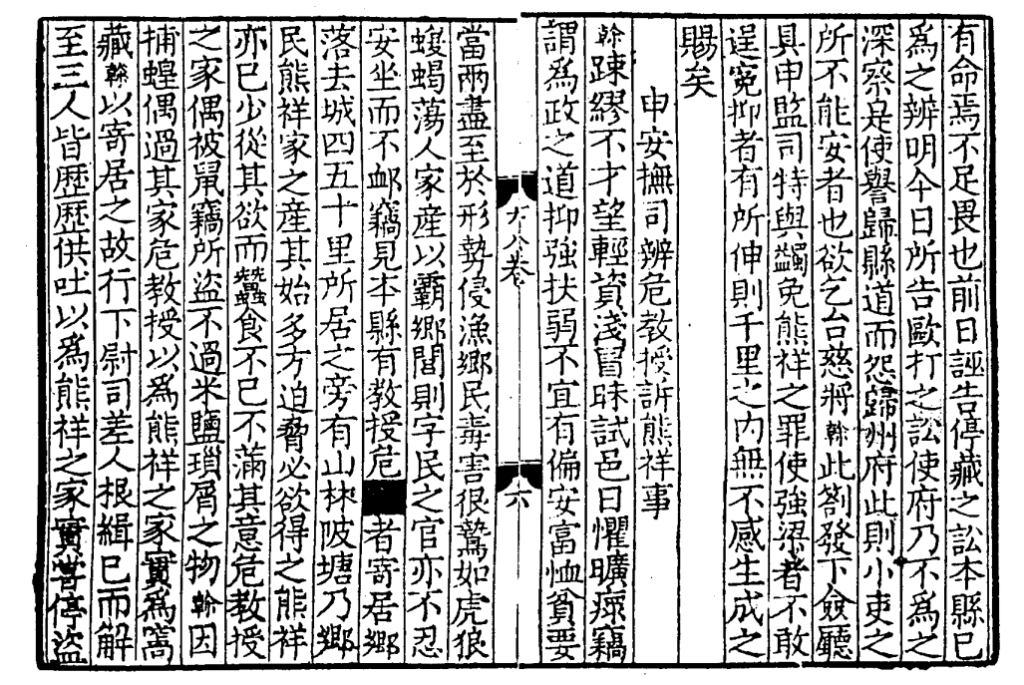 有命焉不足畏也前日誣告停藏之訟本縣已
為之辨明今日所告歐打之訟使府乃不為之
深察是使譽歸縣道而怨歸州府此則小吏之
所不能安者也欲乞台慈將榦此劄發下僉廳
具申監司特與蠲免熊祥之罪使強梁者不敢
逞寃抑者有所伸則千里之内無不感生成之
賜矣
申安撫司辨危教授訴熊祥事
榦踈繆不才望輕資淺冒昧試邑日懼曠瘝竊
謂為政之道抑強扶弱不宜有偏安富恤貧要
十八卷
六
當兩盡至於形勢侵漁鄉民毒害很鷙如虎狼
蝮蝎蕩人家産以霸鄉閭則字民之官亦不忍
安坐而不䘏竊見本縣有教授危■者寄居鄉
落去城四五十里所居之旁有山林陂塘乃鄉
民熊祥家之産其始多方迫脅必欲得之熊祥
亦已少從其欲而蠶食不已不滿其意危教授
之家偶被鼠竊所盜不過米鹽瑣屑之物榦因
捕蝗偶過其家危教授以為熊祥之家實為窩
藏榦以寄居之故行下尉司差人根緝已而解
至三人皆歷歷供吐以為熊祥之家實嘗停盜